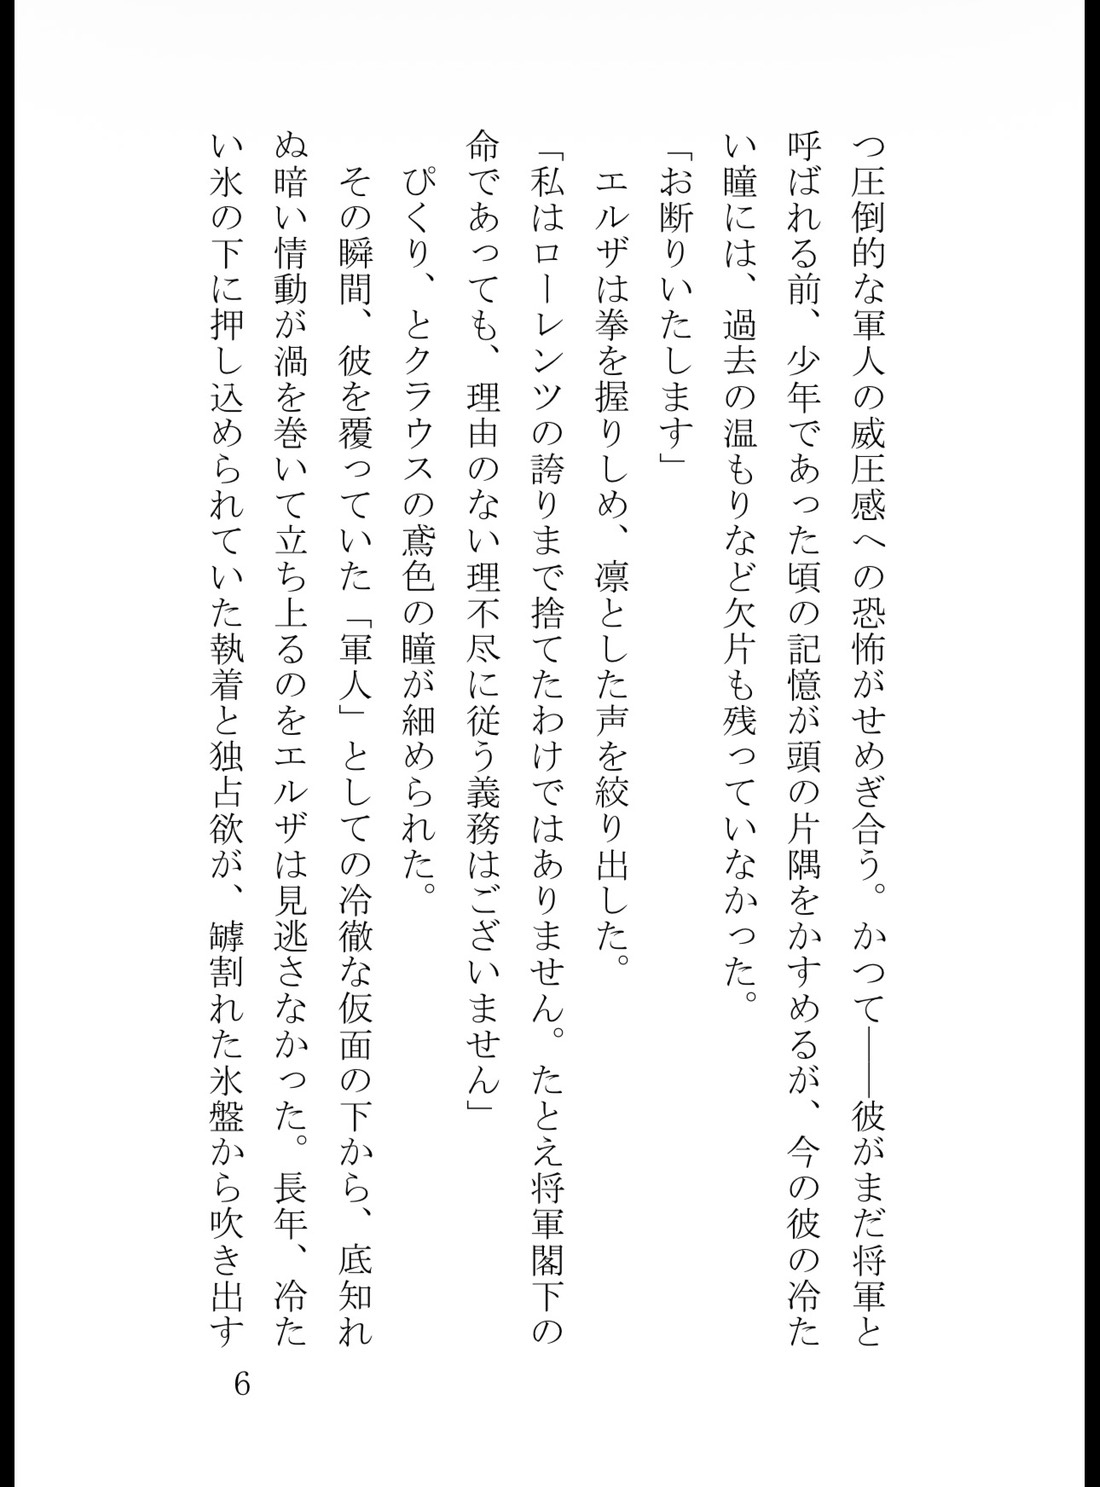 つ圧倒的な軍人の威圧感への恐怖がせめぎ合う。かつて――彼がまだ将軍と
呼ばれる前、少年であった頃の記憶が頭の片隅をかすめるが、今の彼の冷た
い瞳には、過去の温もりなど欠片も残っていなかった。
「お断りいたします」
　エルザは拳を握りしめ、凛とした声を絞り出した。
「私はローレンツの誇りまで捨てたわけではありません。たとえ将軍閣下の
命であっても、理由のない理不尽に従う義務はございません」
　ぴくり、とクラウスの鳶色の瞳が細められた。
　その瞬間、彼を覆っていた「軍人」としての冷徹な仮面の下から、底知れ
ぬ暗い情動が渦を巻いて立ち上るのをエルザは見逃さなかった。長年、冷た
い氷の下に押し込められていた執着と独占欲が、罅割れた氷盤から吹き出す
6